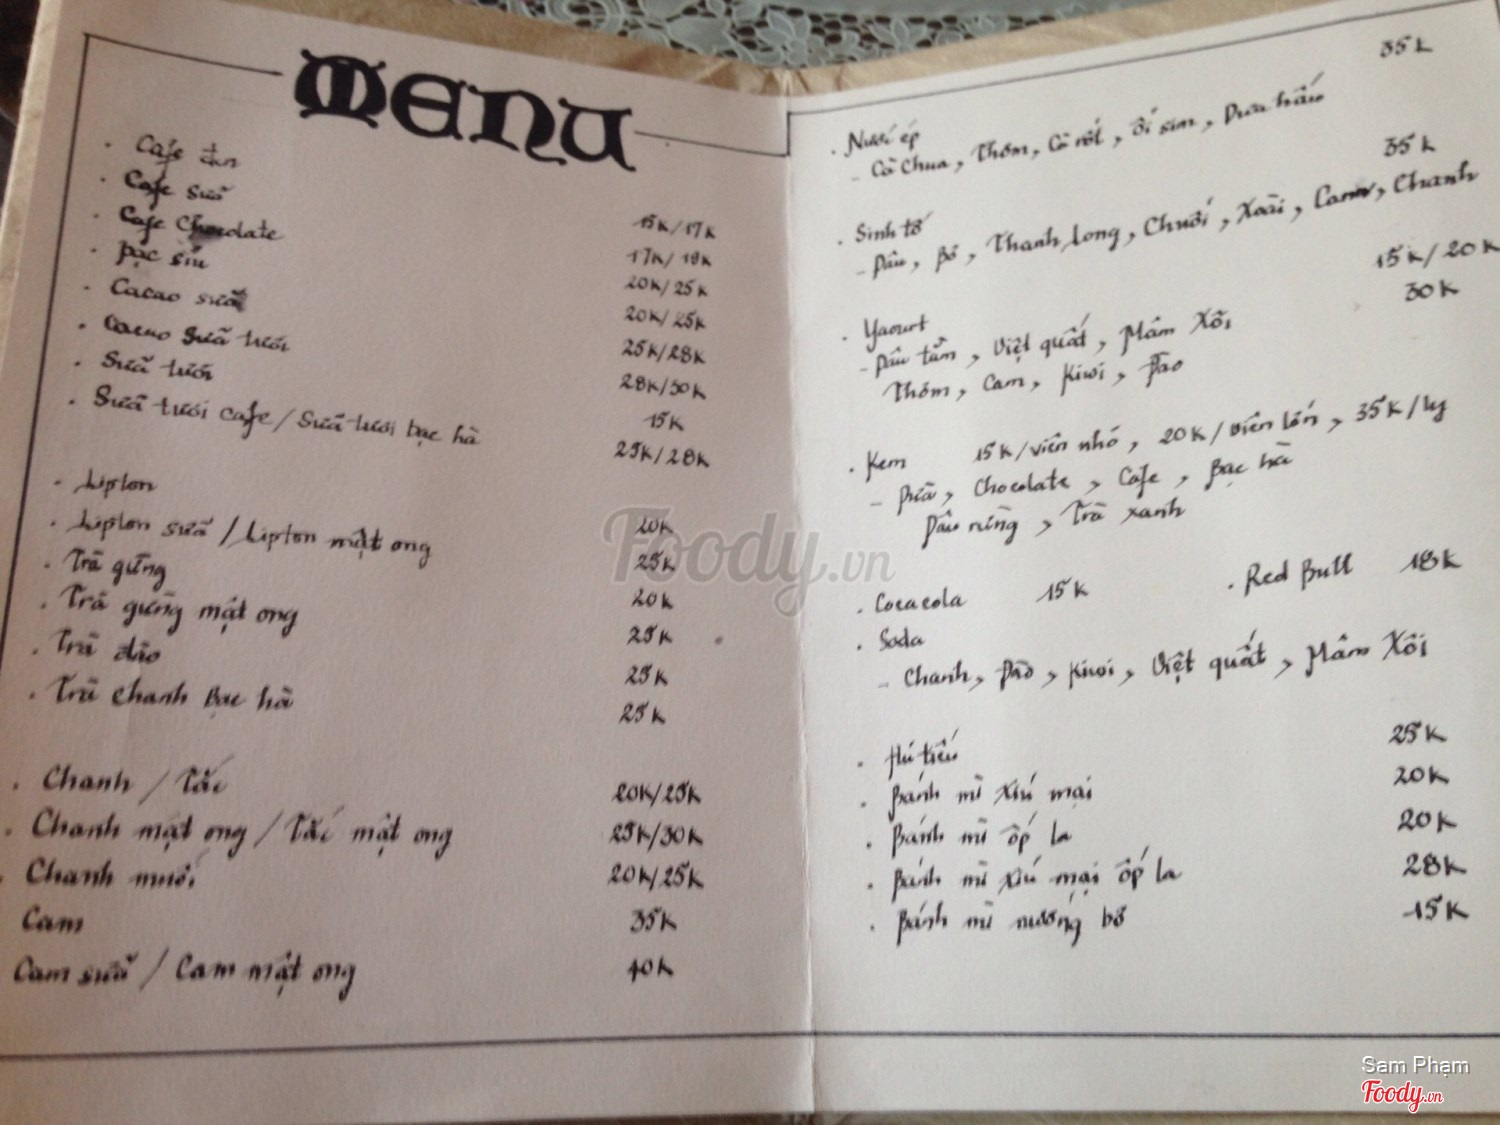 MENU
. Cafe đen 15K/17K
. Cafe sữa 17K/19K
. Cafe Chocolate 20K/25K
. Bạc sỉu 20K/25K
. Cacao sữa 25K/28K
. Cacao sữa tươi 28K/30K
. Sữa tươi 15K
. Sữa tươi cafe/Sữa tươi bạc hà 25K/28K
. Lipton 20K
. Lipton sữa/Lipton mật ong 25K
. Trà gừng 20K
. Trà gừng mật ong 25K
. Trà đào 25K
. Trà chanh Bạc hà 25K
. Chanh / Tắc 20K/25K
. Chanh mật ong / Tắc mật ong 25K/30K
. Chanh muối 20K/25K
Cam 35K
Cam sữa / Cam mật ong 40K
. Nước ép 35K
- Cà Chua, Thơm, Cà rốt, Ổi sim, Dưa hấu
. Sinh tố 35K
- Dâu, Bơ, Thanh Long, Chuối, Xoài, Cam, Chanh
. Yaourt 15K/20K
30K
- Dâu tằm, Việt quất, Mâm Xôi
Thơm, Cam, Kiwi, Đào
. Kem 15K/viên nhỏ, 20K/viên lớn, 35K/ly
- Dừa, Chocolate, Cafe, Bạc hà
Dâu rừng, Trà xanh
. Cocacola 15K . Red Bull 18K
. Soda
- Chanh, Đào, Kiwi, Việt quất, Mâm Xôi
25K
. Hủ tiếu 20K
. Bánh mì xíu mại 20K
. Bánh mì ốp la
. Bánh mì xíu mại ốp la 28K
. Bánh mì nướng bơ 15K
Foody.vn
Sam Phạm
Foody.vn